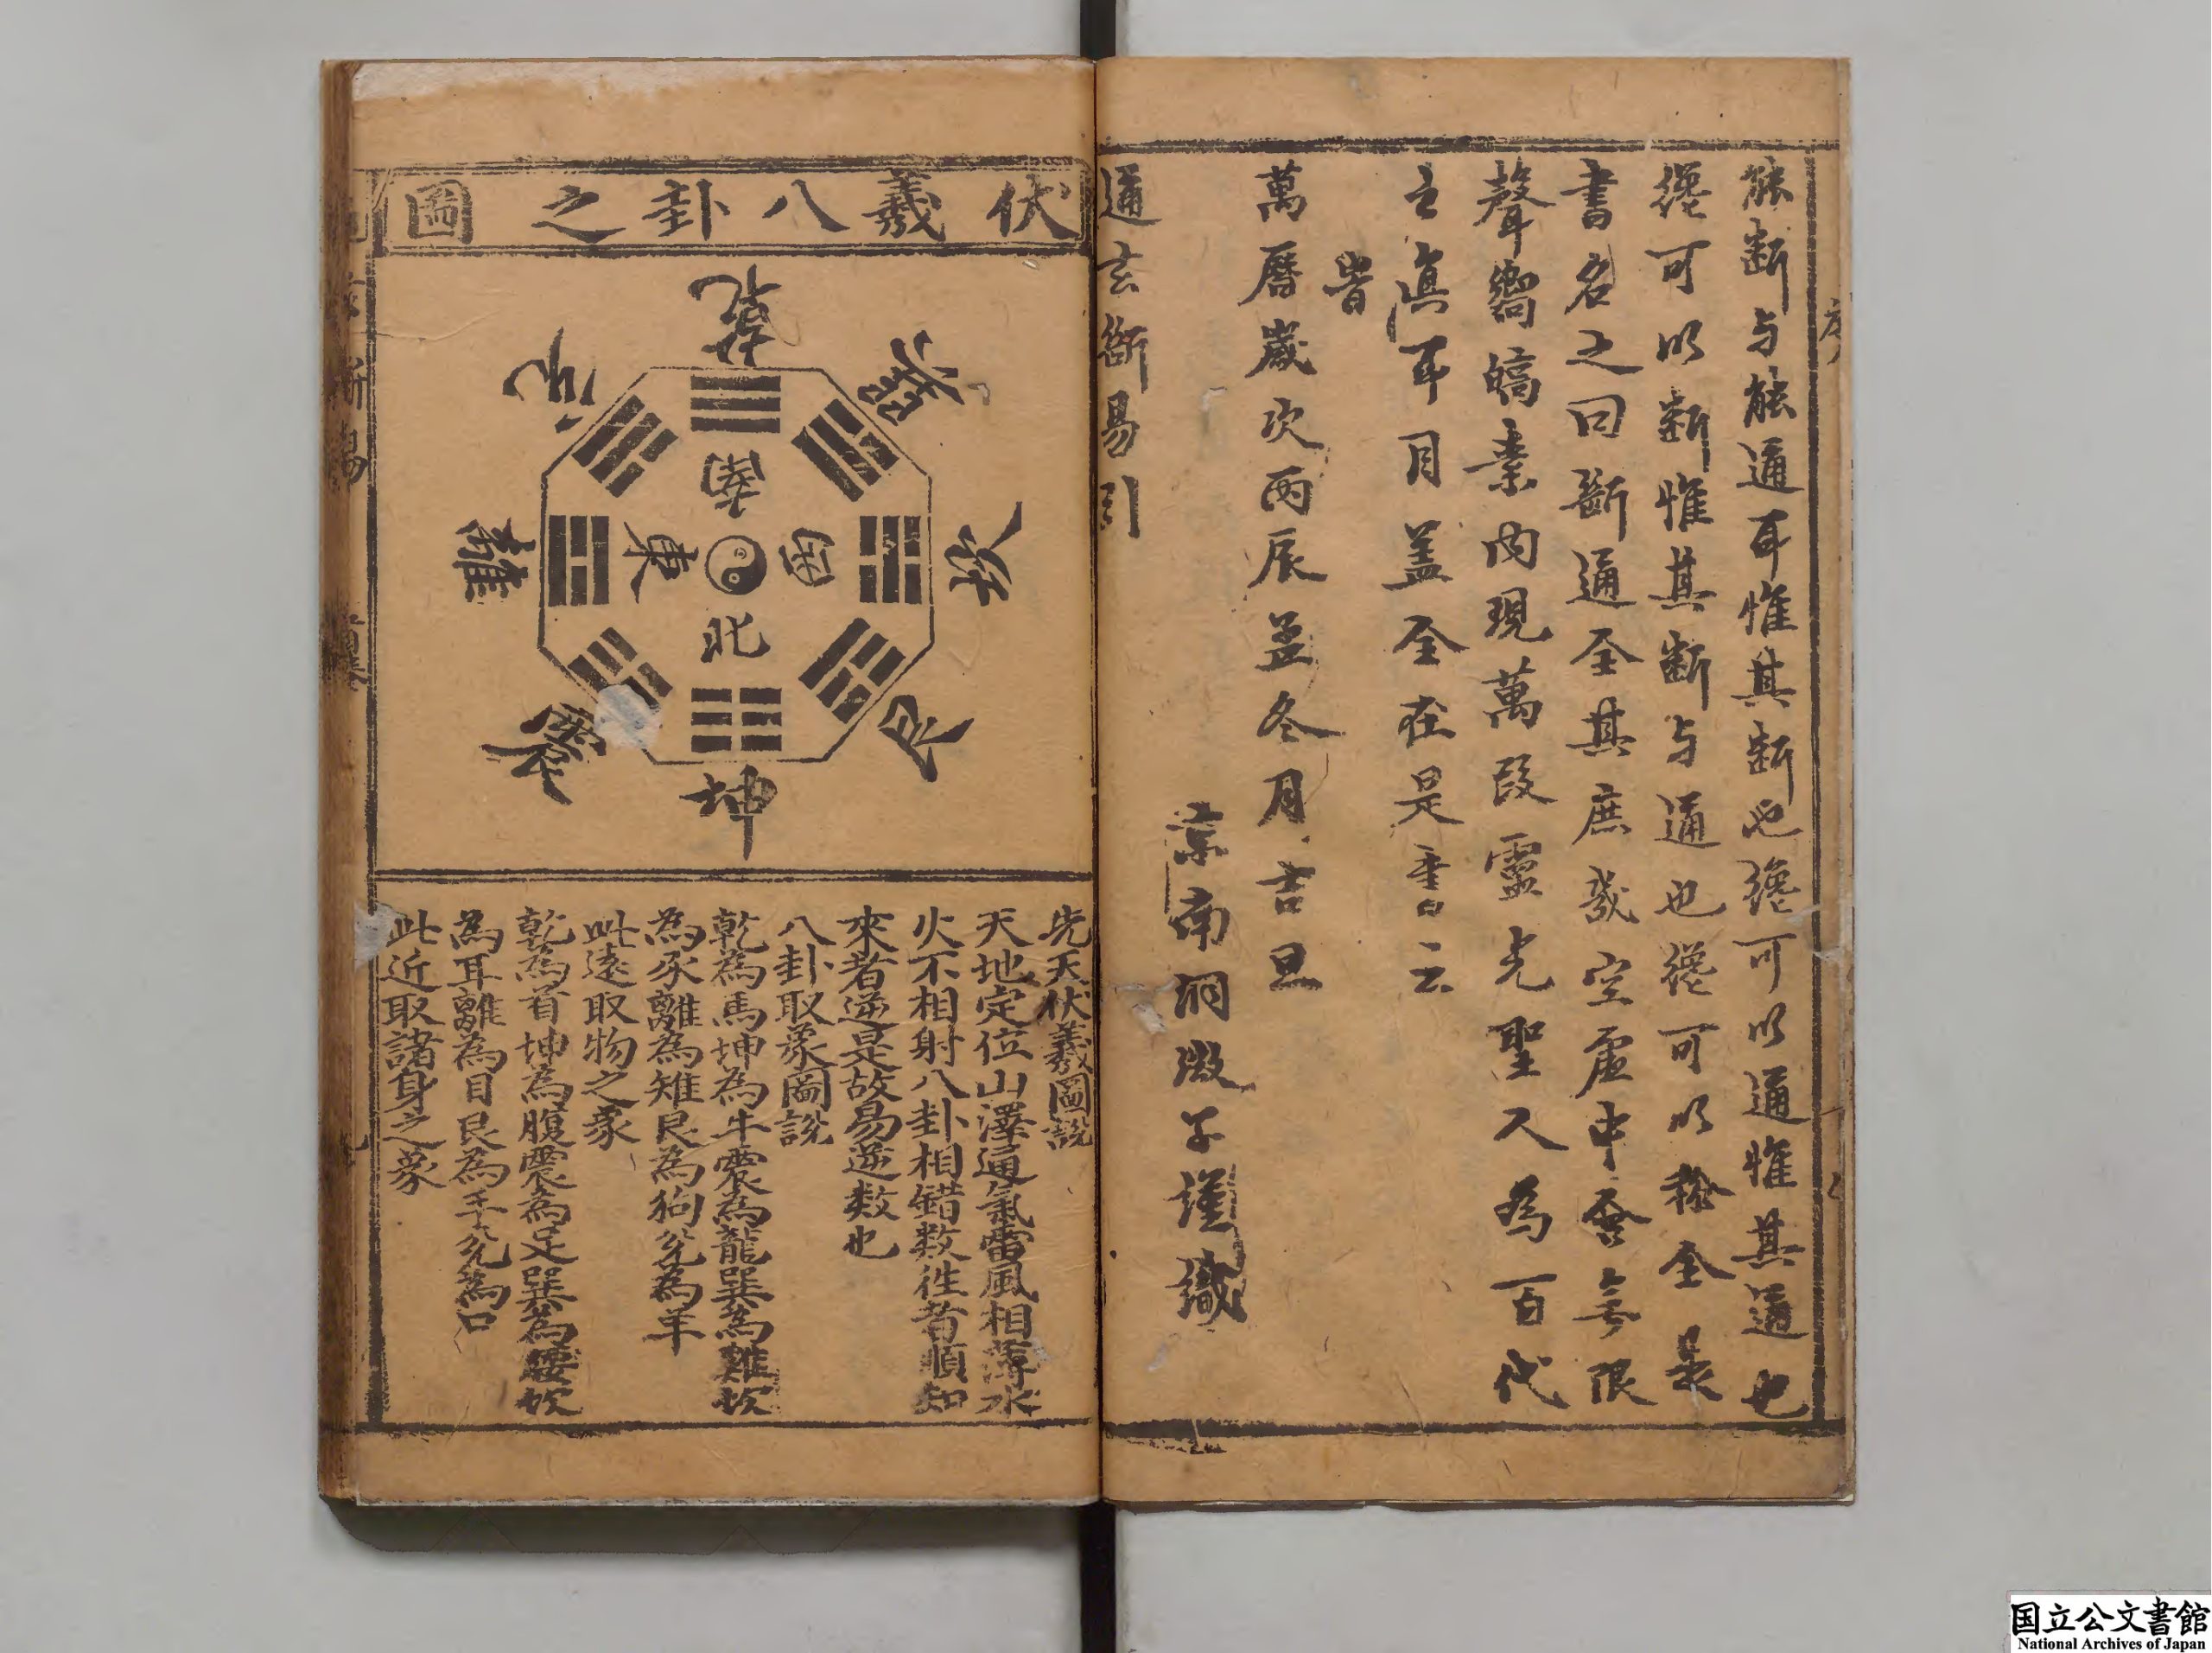 序
能斷与能通耳惟其斷也纔可以通惟其通也
纔可以斷惟其斷与通也纔可以稱全是
書名之曰斷通全其庶幾空虛中吞無限
聲響縞素內現萬段靈光聖人為百代
之眞耳目盖全在是書云
旹
萬曆歲次丙辰孟冬月吉旦
京南洞微子謹識
通玄斷易引
伏羲八卦之圖
乾
兌 巽
離 坎
震 艮
坤
南
東 西
北
先天伏羲圖說
天地定位山澤通氣雷風相薄水
火不相射八卦相錯数徃者順知
來者逆是故易逆数也
八卦取象圖說
乾為馬坤為牛震為龍巽為雞坎
為豕離為雉艮為狗兌為羊
此遠取物之象
乾為首坤為腹震為足巽為腰坎
為耳離為目艮為手兌為口
此近取諸身之象
玄斷易
首卷
国立公文書館
National Archives of Japan